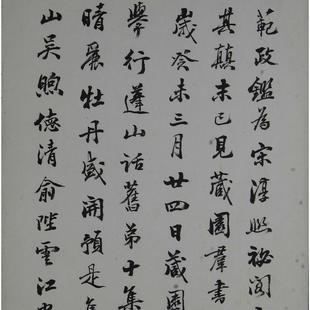 範政鑑為宋淳熙秘閣
其顛末已見藏園羣書
歲癸未三月廿四日藏園
舉行蓬山話舊第十集
晴爰牡丹盛開預是
山吳煦德清俞陛雲江